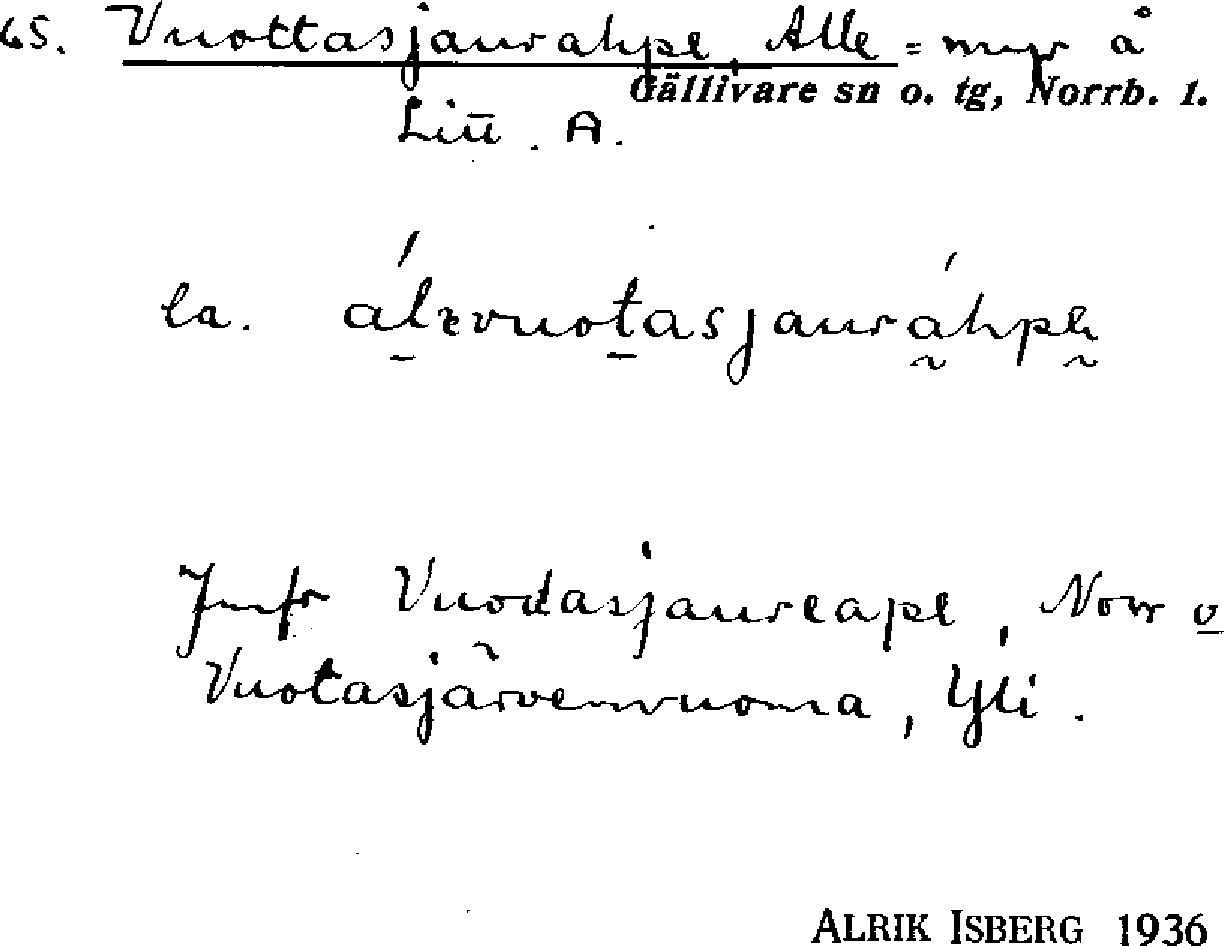 65. Vuottasjaurahpe, Alle = myr å
Gällivare sn o. tg, Norrb. l.
Litt. A.
la. álɛvuotasjauráhpe
Jmfr Vuodasjaureape, Norr o
Vuotasjärvenvuoma, Yli.
ALRIK ISBERG 1936